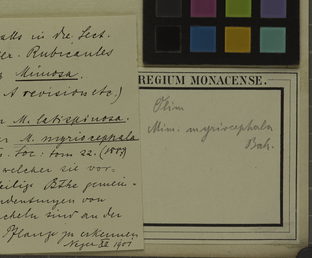 falls in die Sect.
Rubicaules
Mimosa.
A revision etc.)
M. latispinosa.
M. myriocephala
Soc: tom 22. (1887)
welcher sie vor-
Bthe gemein-
ndeutungen von
cheln sind an der
Pflanze zu erkennen
1901
REGIUM MONACENSE.
Olim
Mim. myriocephala
Bak.